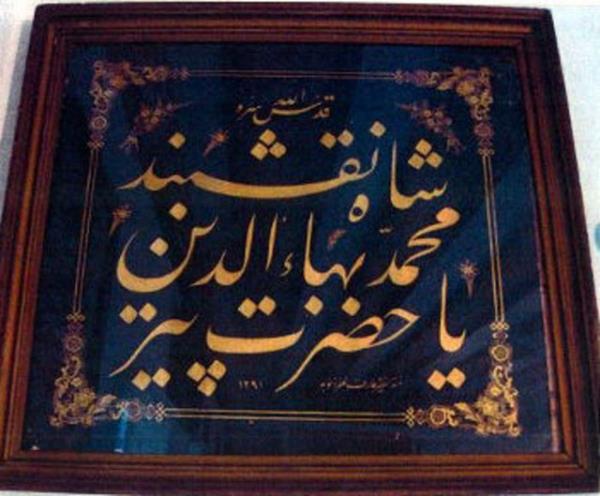 قدس الله سره
شاه نقشبند
محمد بهاء الدين
يا حضرت پير
١٢٩١